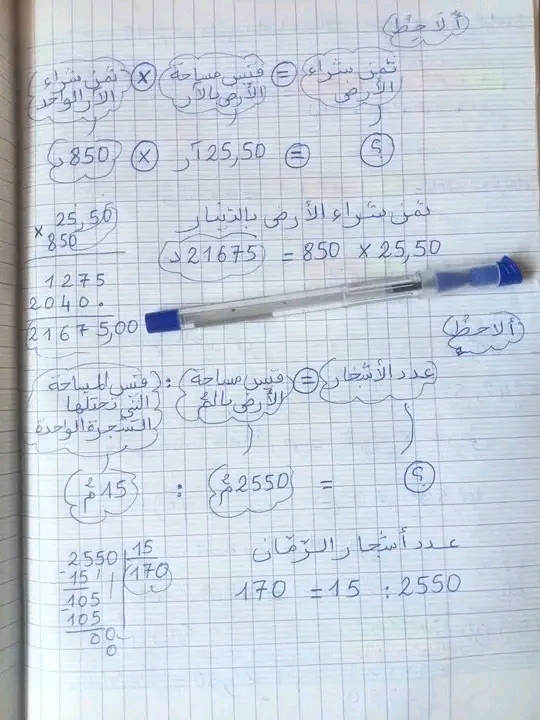 ألاحظ
ثمن شراء الأرض = قيس مساحة الأرض بالآر × ثمن شراء الآر الواحد
؟ = 25,50 آر × 850 د
ثمن شراء الأرض بالدينار
25,50 × 850 = 21675 د
25,50
× 850
1275
2040.
21675,00
ألاحظ
عدد الأشجار = قيس مساحة الأرض بالم² : قيس المساحة التي تحتلها الشجرة الواحدة
؟ = 2550 م² : 15 م²
عدد أشجار الرّمّان
2550 : 15 = 170
2550 15
-15 170
105
-105
00
0